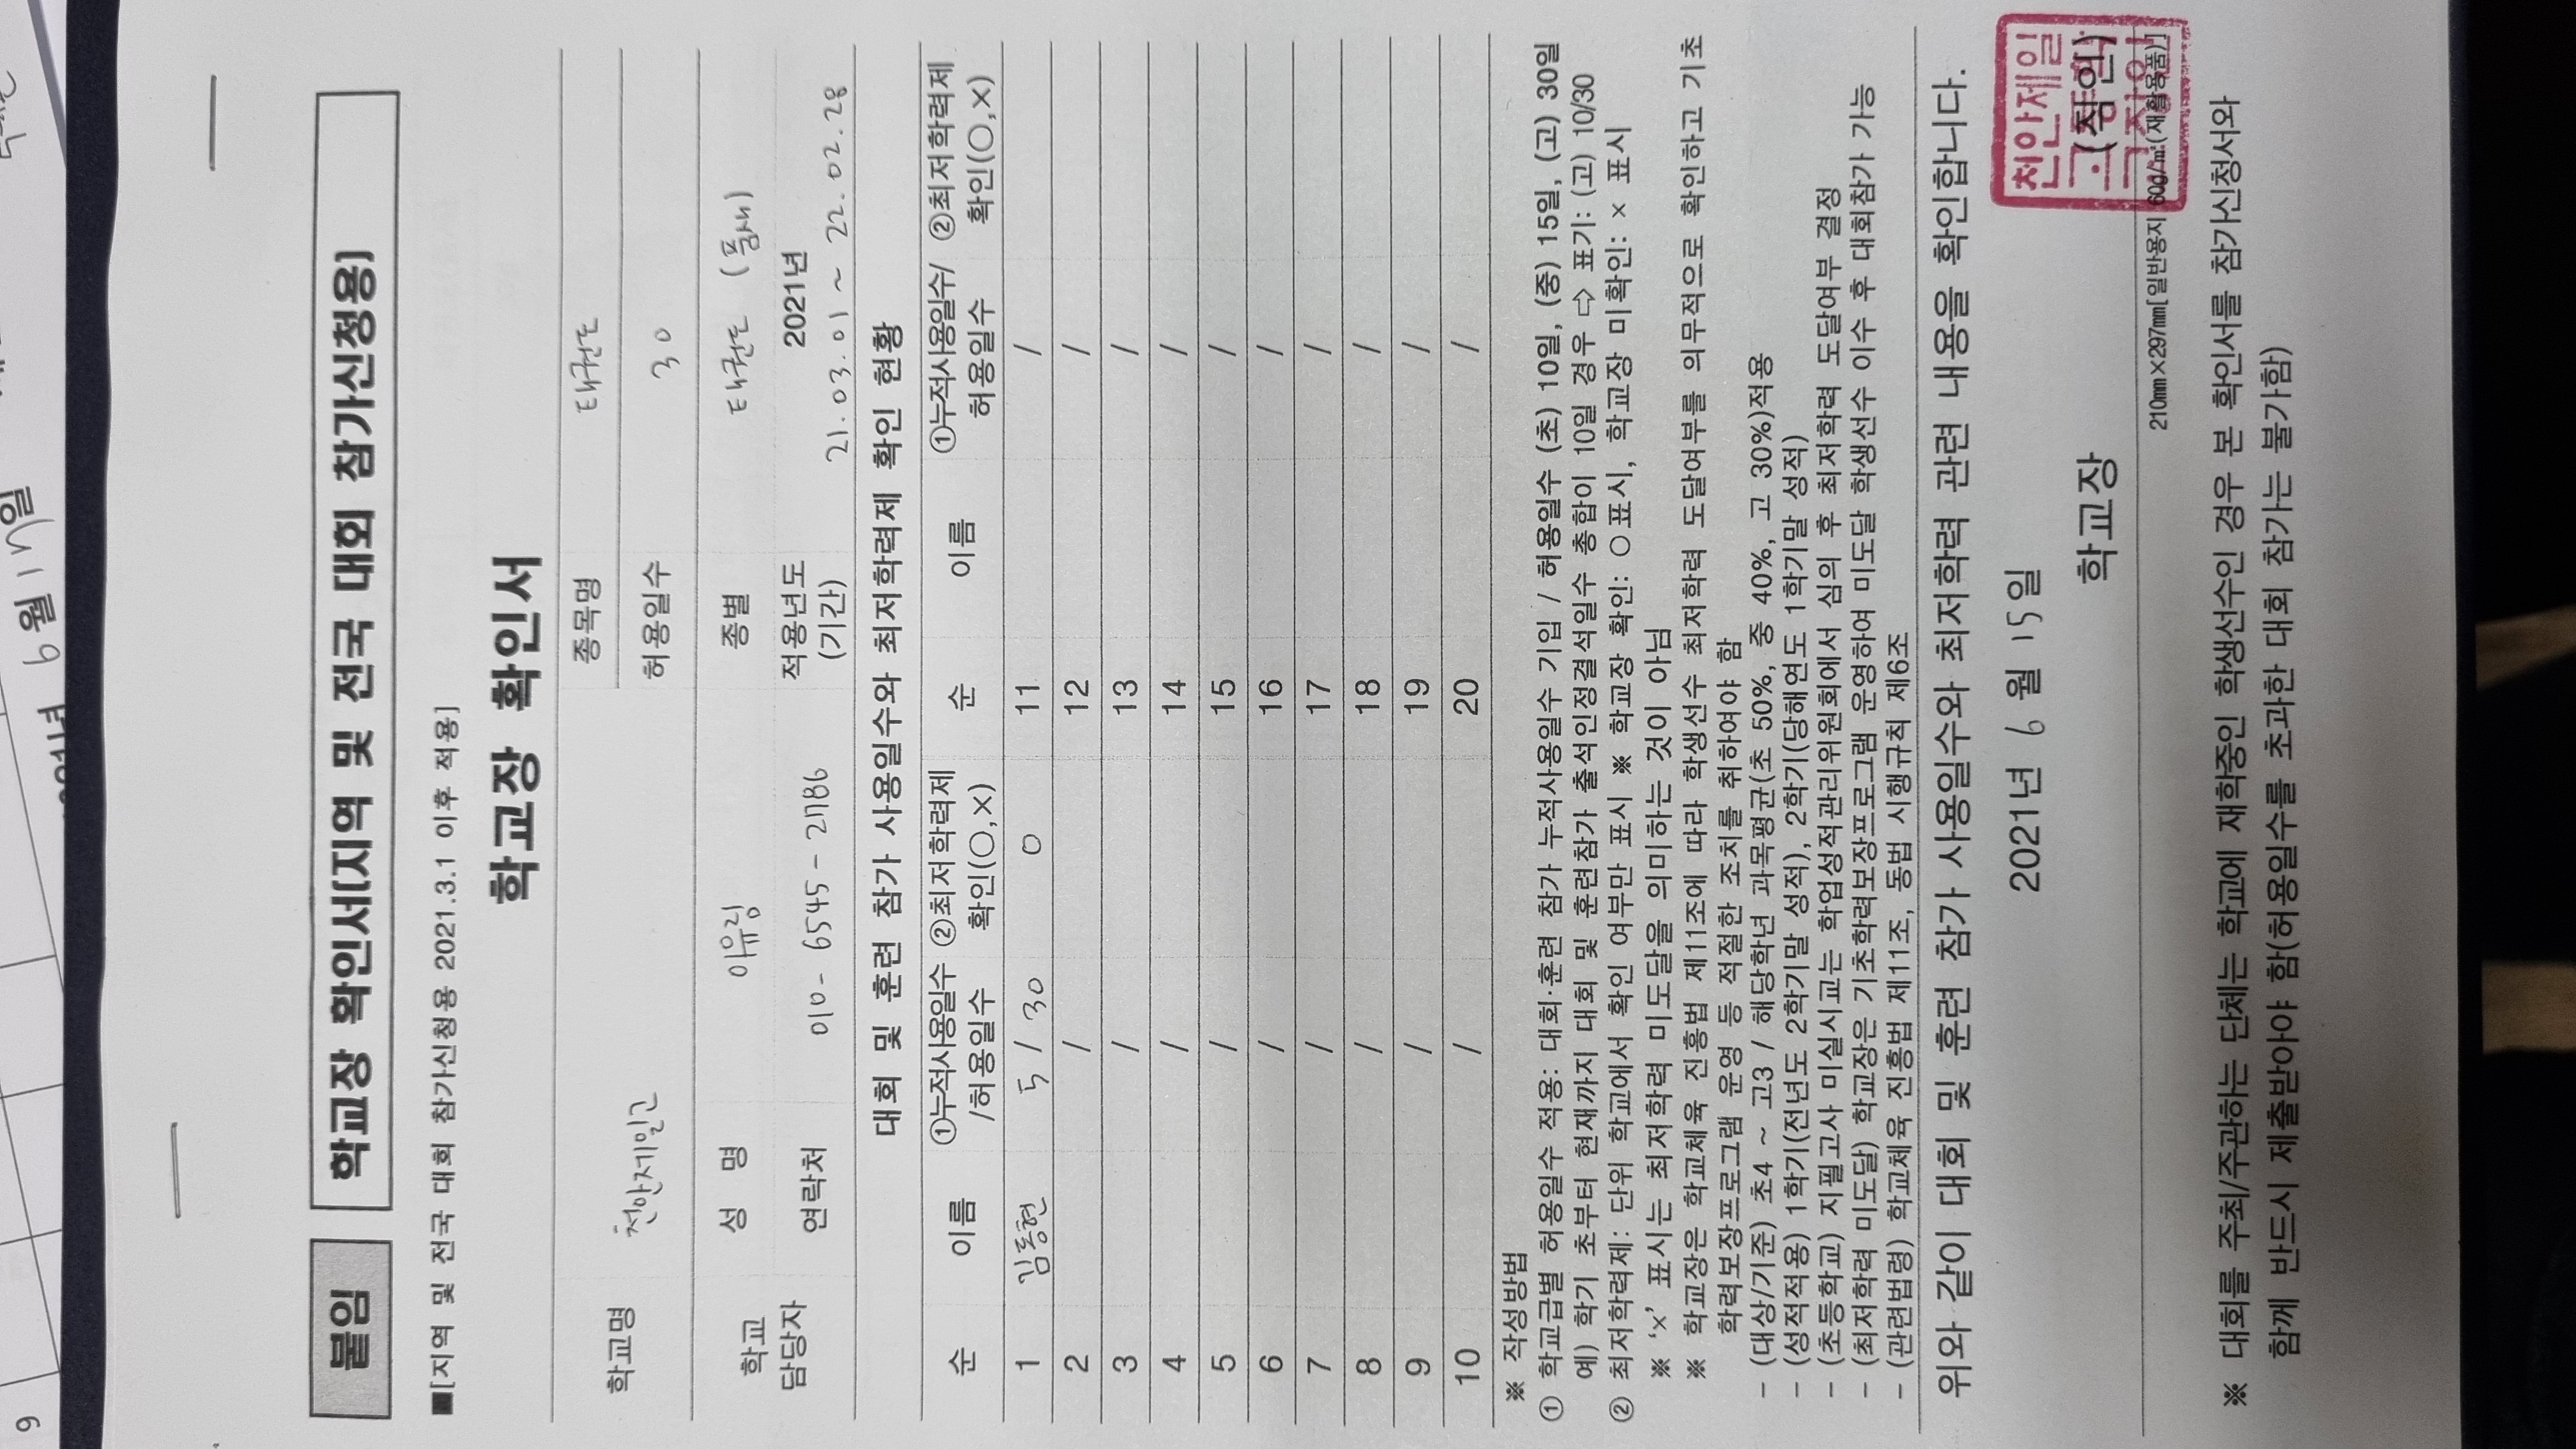 붙임
학교장 확인서(지역 및 전국 대회 참가신청용)
■[지역 및 전국 대회 참가신청용 2021.3.1 이후 적용]
학교장 확인서
학교명 천안제일고 종목명 태권도
허용일수 30
학교 담당자 성 명 이유림 종별 태권도 (품새)
연락처 010-6545-2786 적용년도 (기간) 2021년
21.03.01 ~ 22.02.28
대회 및 훈련 참가 사용일수와 최저학력제 확인 현황
순 이름 ①누적사용일수/허용일수 ②최저학력제 확인(○,×) 순 이름 ①누적사용일수/허용일수 ②최저학력제 확인(○,×)
1 김동현 5 / 30 O 11 /
2 / 12 /
3 / 13 /
4 / 14 /
5 / 15 /
6 / 16 /
7 / 17 /
8 / 18 /
9 / 19 /
10 / 20 /
※ 작성방법
① 학교급별 허용일수 적용: 대회·훈련 참가 누적사용일수 기입 / 허용일수 (초) 10일, (중) 15일, (고) 30일
예) 학기 초부터 현재까지 대회 및 훈련참가 출석인정결석일수 총합이 10일 경우 ⇨ 표기: (고) 10/30
② 최저학력제: 단위 학교에서 확인 여부만 표시 ※ 학교장 확인: ○표시, 학교장 미확인: × 표시
※ '×' 표시는 최저학력 미도달을 의미하는 것이 아님
※ 학교장은 학교체육 진흥법 제11조에 따라 학생선수 최저학력 도달여부를 의무적으로 확인하고 기초
학력보장프로그램 운영 등 적절한 조치를 취하여야 함
- (대상/기준) 초4 ~ 고3 / 해당학년 과목평균(초 50%, 중 40%, 고 30%)적용
- (성적적용) 1학기(전년도 2학기말 성적), 2학기(당해연도 1학기말 성적)
- (초등학교) 지필고사 미실시교는 학업성적관리위원회에서 심의 후 최저학력 도달여부 결정
- (최저학력 미도달) 학교장은 기초학력보장프로그램 운영하여 미도달 학생선수 이수 후 대회참가 가능
- (관련법령) 학교체육 진흥법 제11조, 동법 시행규칙 제6조
위와 같이 대회 및 훈련 참가 사용일수와 최저학력 관련 내용을 확인합니다.
2021년 6월 15일
학교장 (직인)
천안제일
210㎜×297㎜[일반용지 60g/㎡(재활용품)]
※ 대회를 주최/주관하는 단체는 학교에 재학중인 학생선수인 경우 본 확인서를 참가신청서와
함께 반드시 제출받아야 함(허용일수를 초과한 대회 참가는 불가함)
6월 17일
9